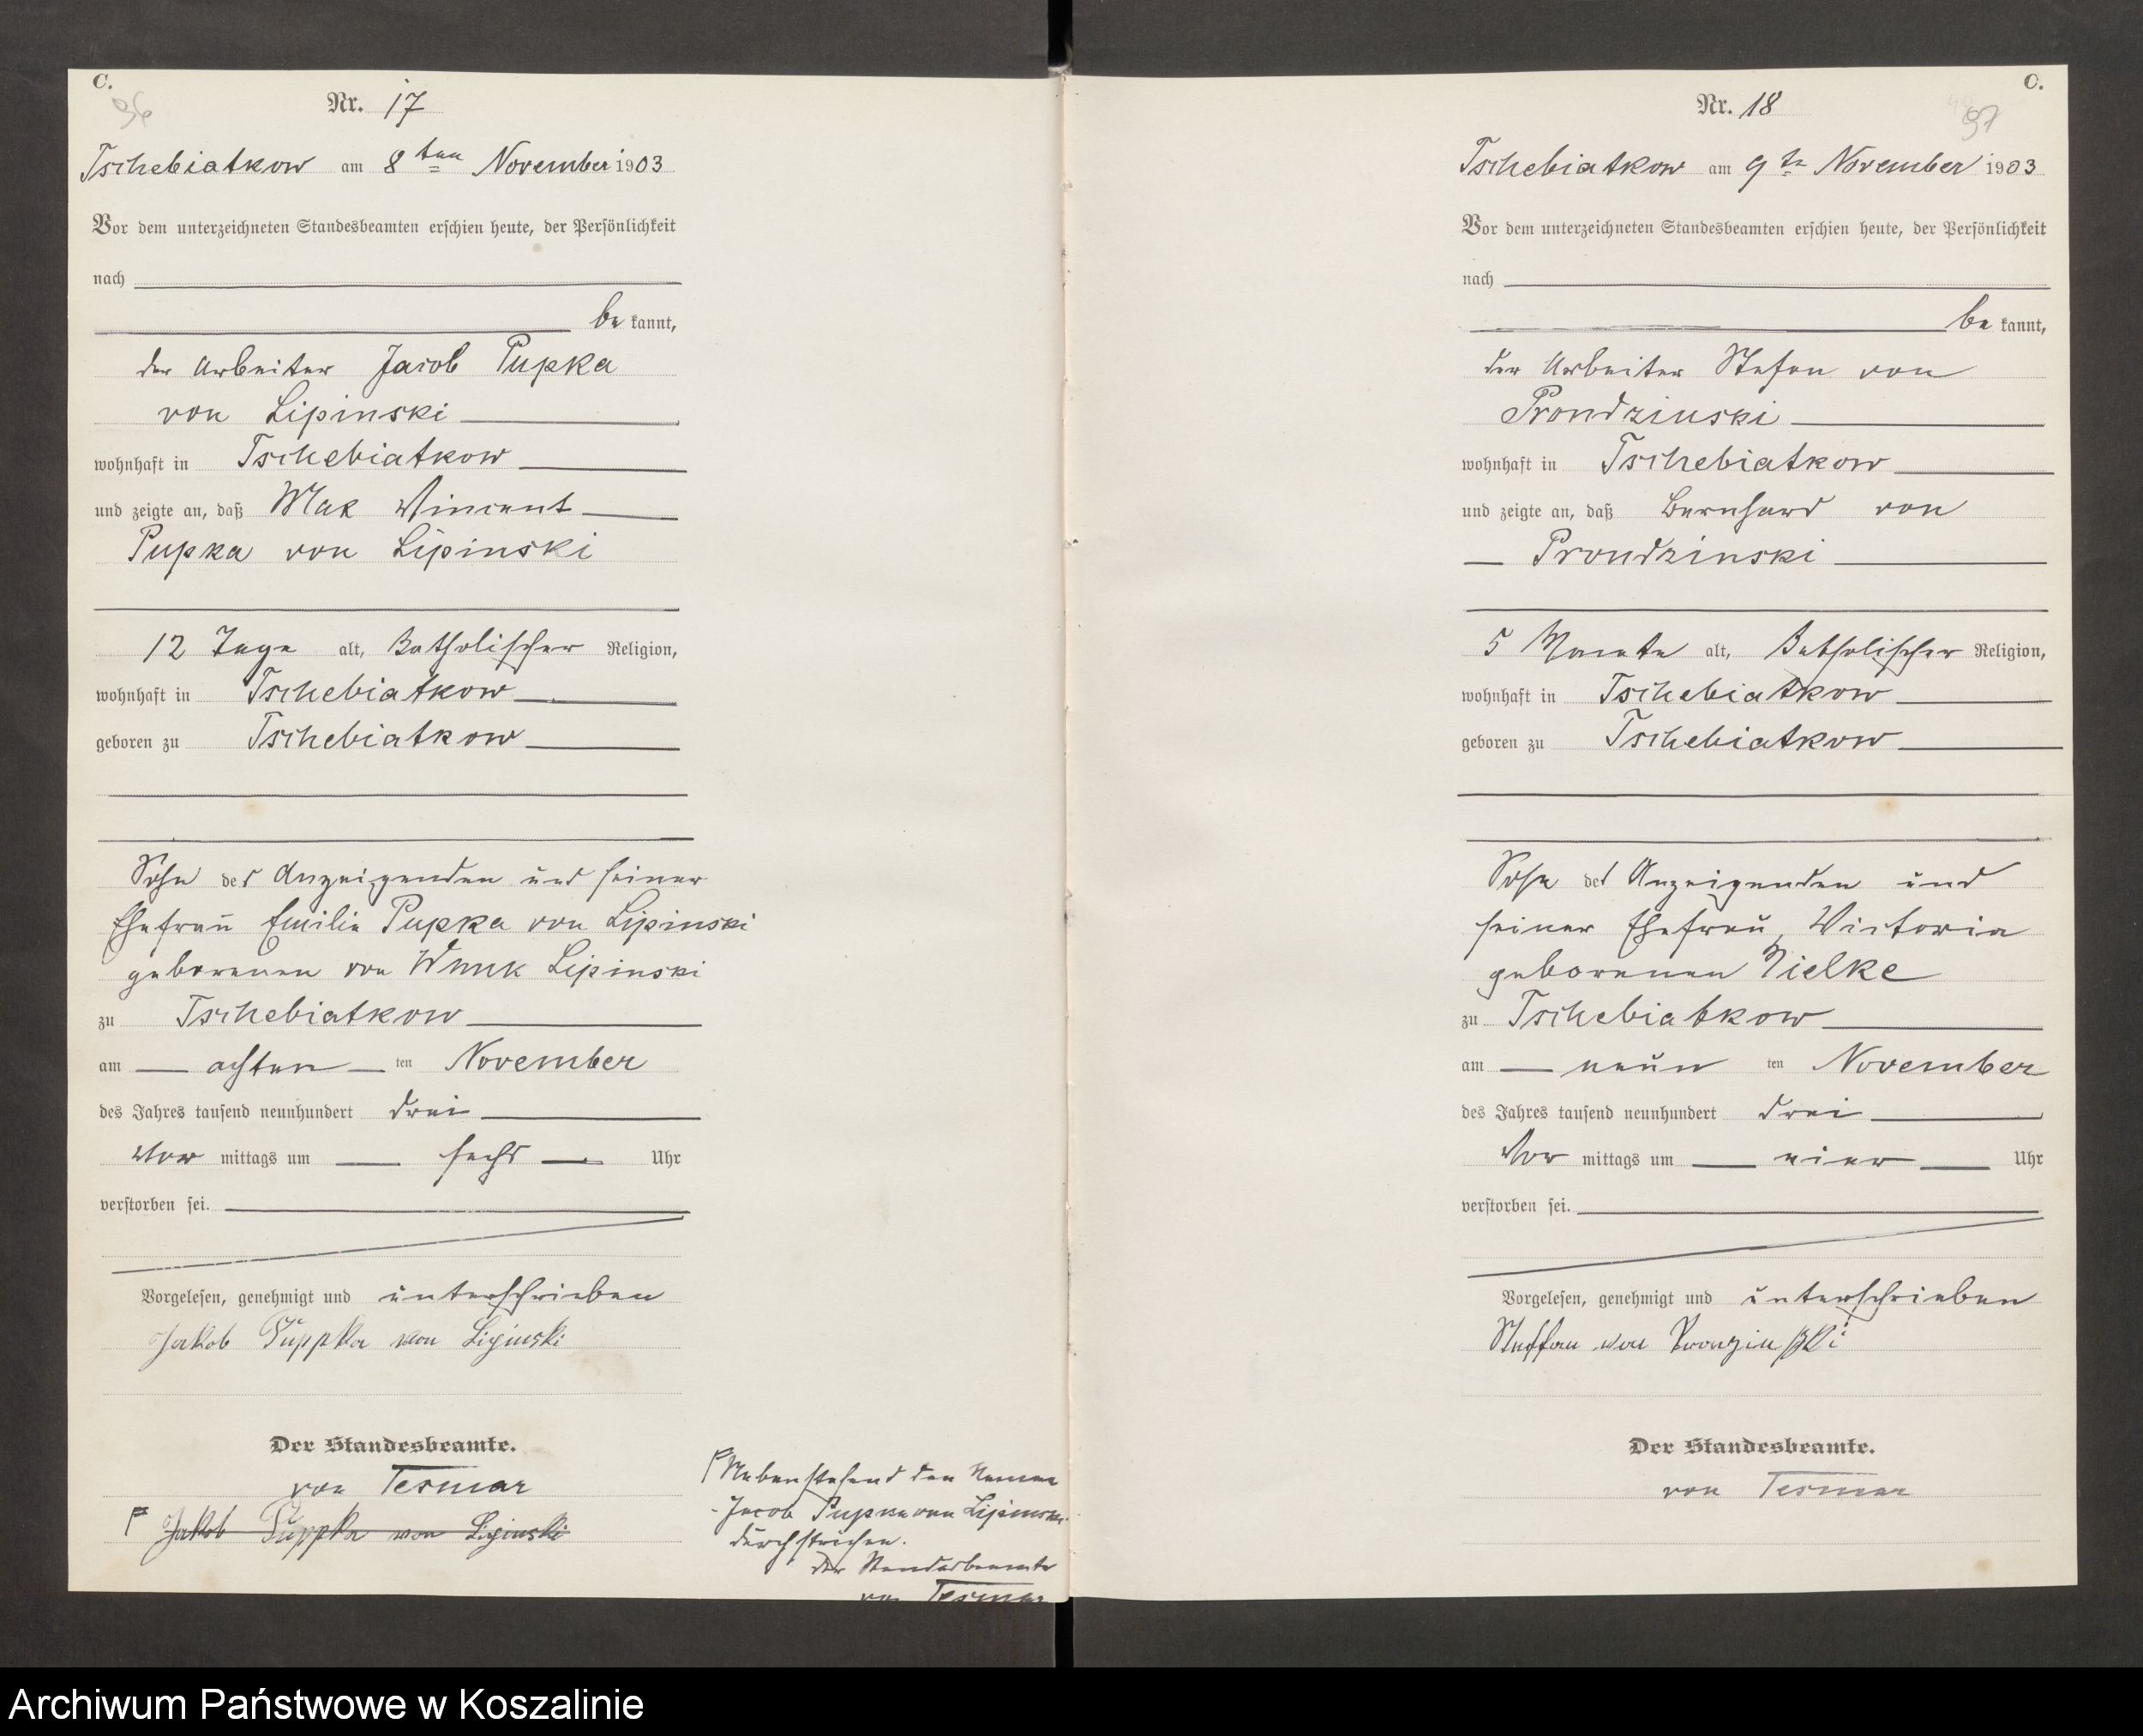 C.
96
Nr. 17
Tschebiatkow am 8ten November 1903
Vor dem unterzeichneten Standesbeamten erschien heute, der Persönlichkeit
nach
be kannt,
der Arbeiter Jacob Pupka
von Lipinski
wohnhaft in Tschebiatkow
und zeigte an, daß Max Vincent
Pupka von Lipinski
12 Tage alt, Katholischer Religion,
wohnhaft in Tschebiatkow
geboren zu Tschebiatkow
Sohn des Anzeigenden und seiner
Ehefrau Emilie Pupka von Lipinski
geborenen von Wnuk Lipinski
zu Tschebiatkow
am achten ten November
des Jahres tausend neunhundert drei
Vor mittags um sechs Uhr
verstorben sei.
Vorgelesen, genehmigt und unterschrieben
Jakob Puppka von Lipinski
Der Standesbeamte.
von Tesmar
Jakob Puppka von Lipinski
Nebenstehend den Namen
Jacob Pupka von Lipinski
durchstrichen.
Der Standesbeamte
von Tesmar
C.
97
Nr. 18
Tschebiatkow am 9te November 1903
Vor dem unterzeichneten Standesbeamten erschien heute, der Persönlichkeit
nach
be kannt,
der Arbeiter Stefan von
Prondzinski
wohnhaft in Tschebiatkow
und zeigte an, daß Bernhard von
Prondzinski
5 Monate alt, Katholischer Religion,
wohnhaft in Tschebiatkow
geboren zu Tschebiatkow
Sohn des Anzeigenden und
seiner Ehefrau, Victoria
geborenen Zielke
zu Tschebiatkow
am neun ten November
des Jahres tausend neunhundert drei
Vor mittags um vier Uhr
verstorben sei.
Vorgelesen, genehmigt und unterschrieben
Steffan von Pronzinski
Der Standesbeamte.
von Tesmar
Archiwum Państwowe w Koszalinie